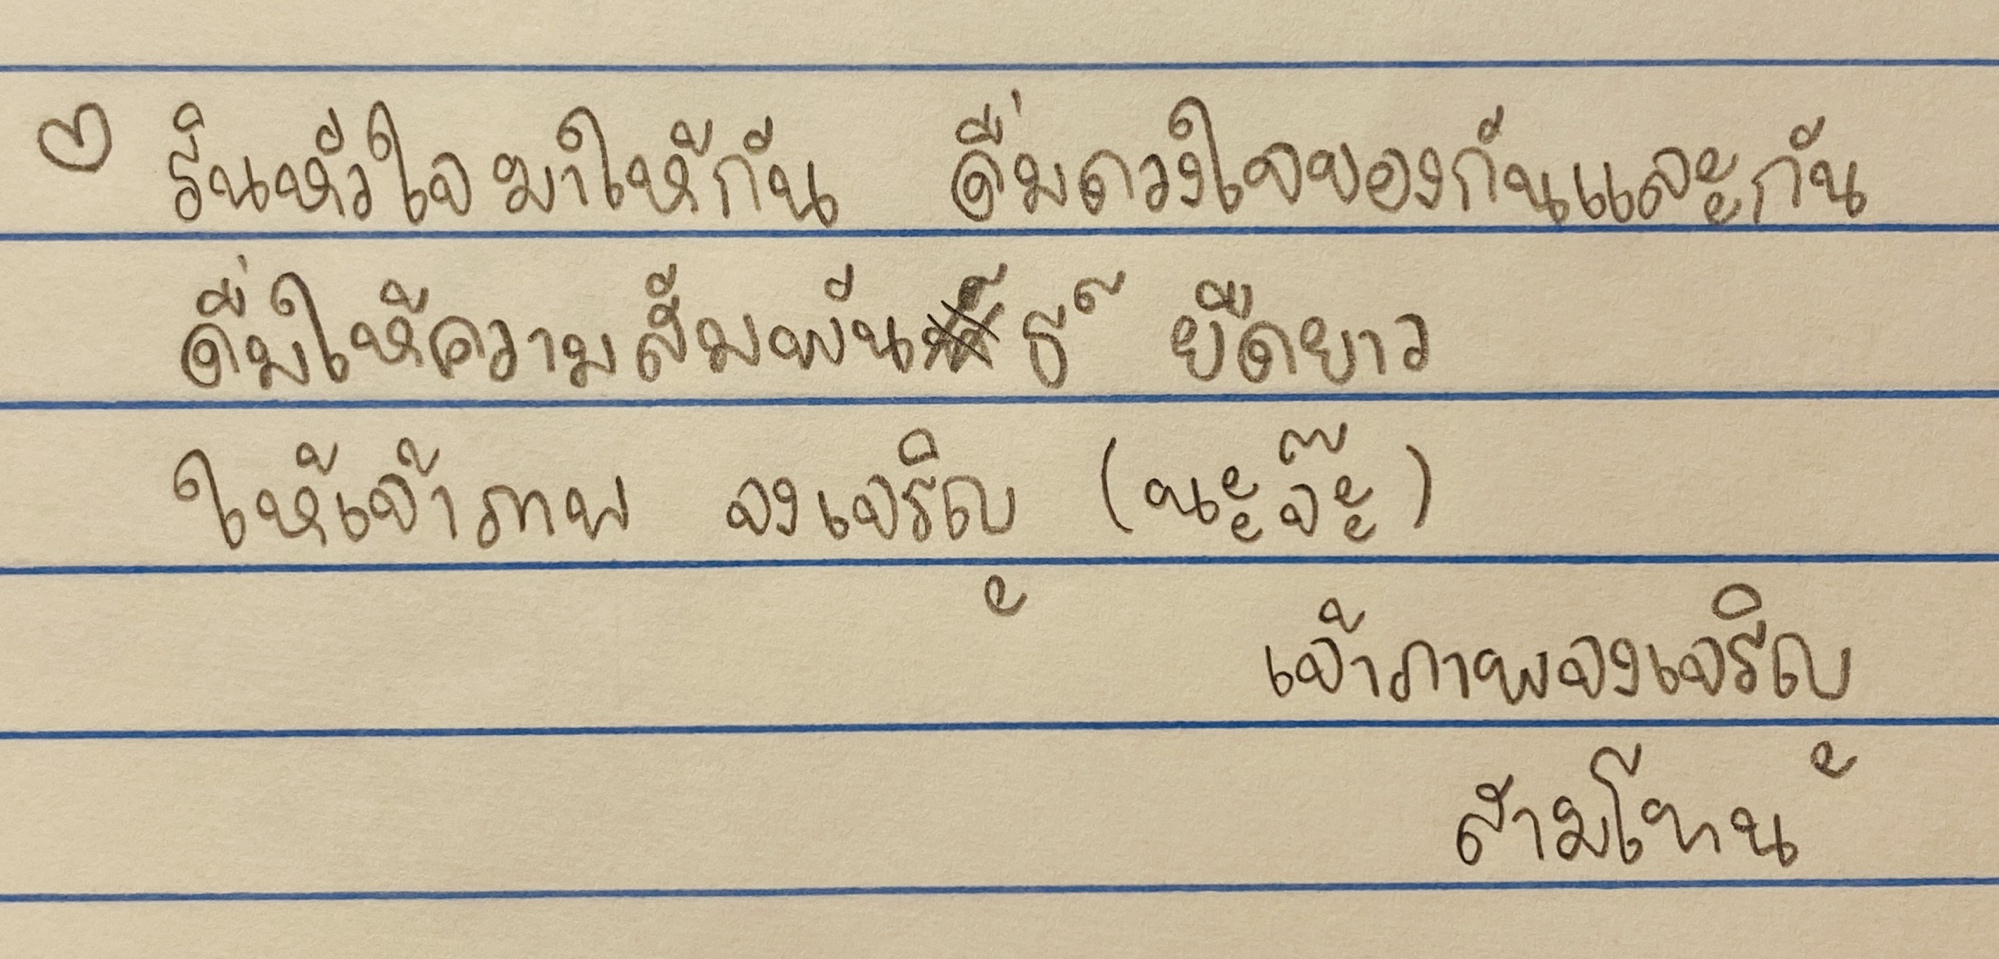 ♡ รินหัวใจมาให้กัน ดื่มดวงใจของกันและกัน
ดื่มให้ความสัมพันธ์ ยืดยาว
ให้เจ้าภาพ จงเจริญ (นะจ๊ะ)
เจ้าภาพจงเจริญ
สามโทน